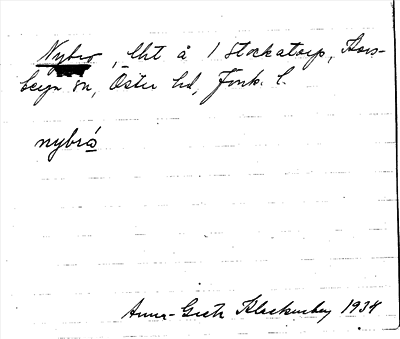 Nybro, lht å 1 Stockatorp, Kors-
berga sn, Östra hd, Jönk. l.
nybrå
Anna-Greta Blackenberg 1934